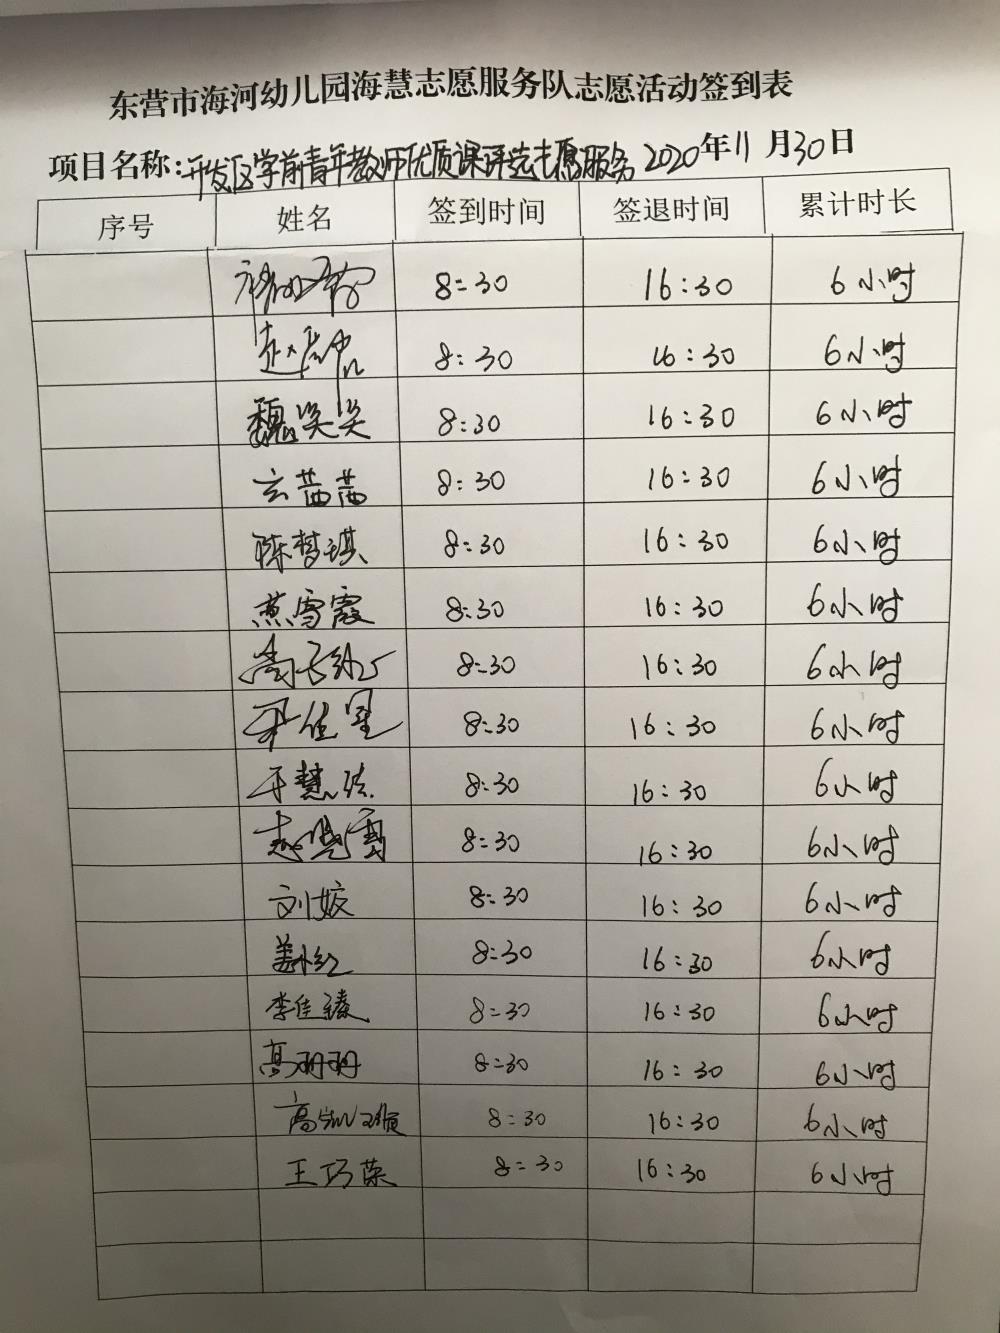 东营市海河幼儿园海慧志愿服务队志愿活动签到表
项目名称:开发区学前青年教师优质课评选志愿服务 2020年11月30日
序号 姓名 签到时间 签退时间 累计时长
8:30 16:30 6小时
赵 8:30 16:30 6小时
魏笑笑 8:30 16:30 6小时
云茜茜 8:30 16:30 6小时
陈梦琪 8:30 16:30 6小时
燕雪霞 8:30 16:30 6小时
8:30 16:30 6小时
8:30 16:30 6小时
于慧 8:30 16:30 6小时
8:30 16:30 6小时
刘姣 8:30 16:30 6小时
姜小红 8:30 16:30 6小时
李佳臻 8:30 16:30 6小时
高珊珊 8:30 16:30 6小时
高 8:30 16:30 6小时
王巧荣 8:30 16:30 6小时